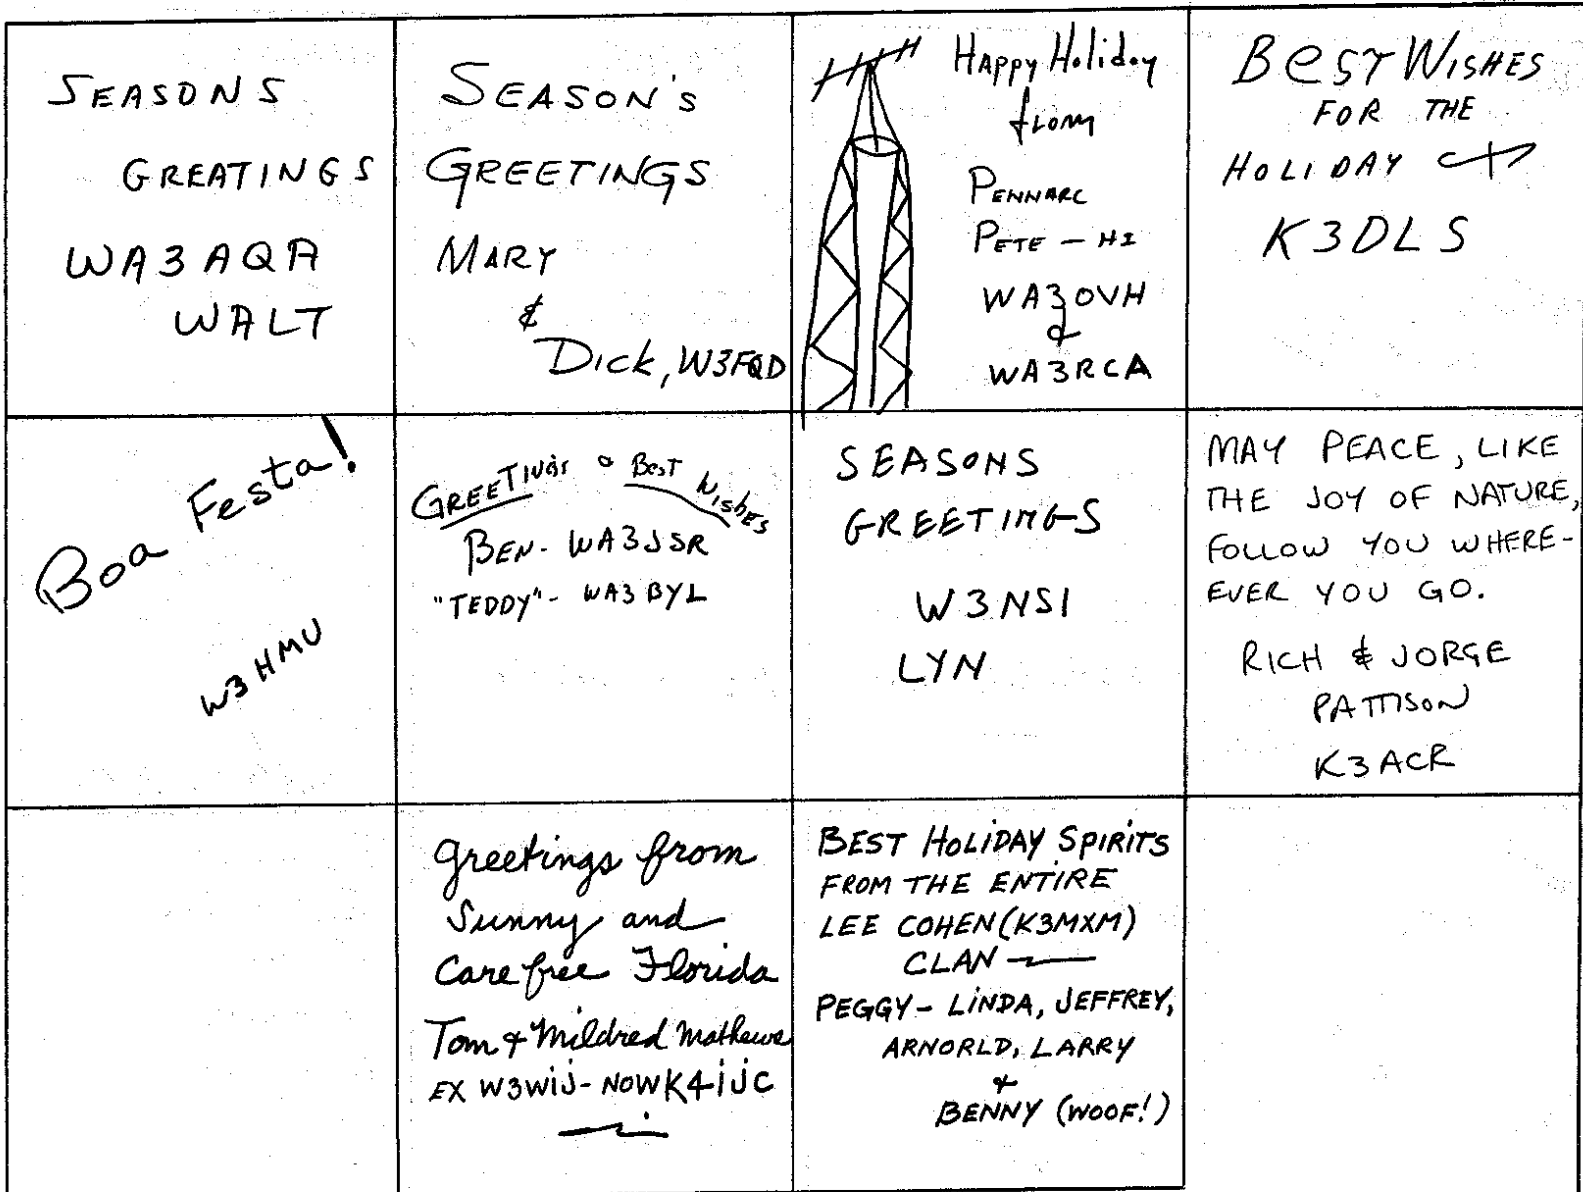 SEASONS
GREATINGS
WA3AQA
WALT
SEASON'S
GREETINGS
MARY
&
Dick, W3FQD
Happy Holiday
from
PENNARC
PETE - HI
WA3OVH
&
WA3RCA
BEST WISHES
FOR THE
HOLIDAY
K3DLS
Boa Festa!
W3HMU
GREETINGS & BEST WISHES
BEN - WA3JSR
"TEDDY" - WA3BYL
SEASONS
GREETINGS
W3NSI
LYN
MAY PEACE, LIKE
THE JOY OF NATURE,
FOLLOW YOU WHERE-
EVER YOU GO.
RICH & JORGE
PATTISON
K3ACR
Greetings from
Sunny and
Carefree Florida
Tom & Mildred Mathews
EX W3WIJ - NOW K4IJC
BEST HOLIDAY SPIRITS
FROM THE ENTIRE
LEE COHEN (K3MXM)
CLAN
PEGGY - LINDA, JEFFREY,
ARNORLD, LARRY
&
BENNY (WOOF!)